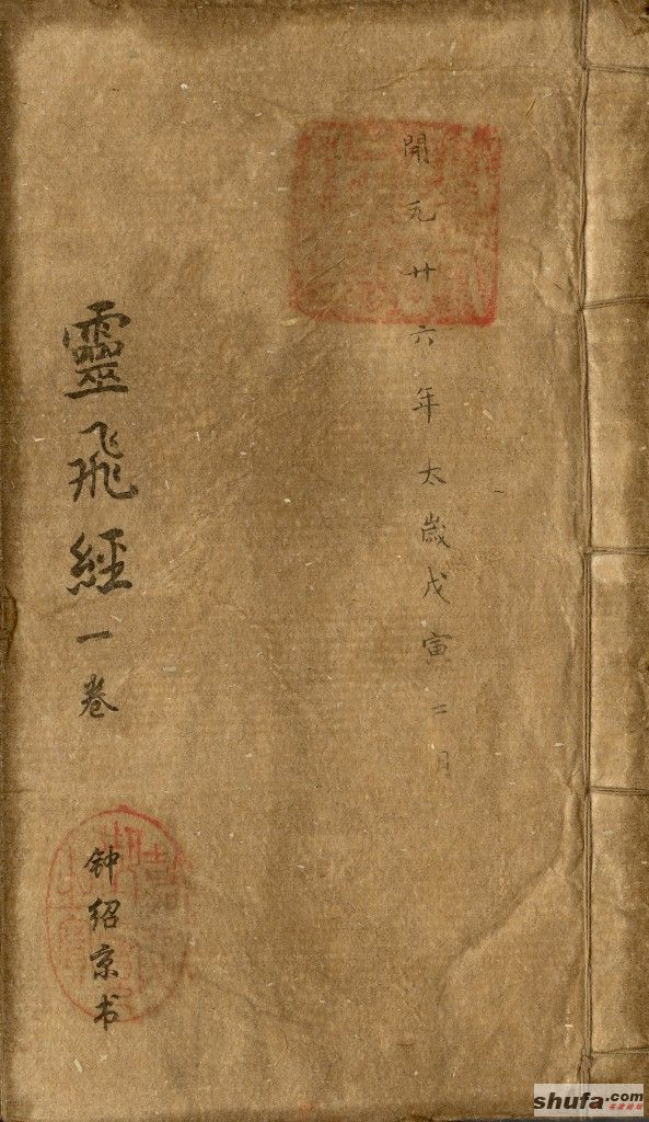 開元廿六年太歲戊寅二月
靈飛經一卷
钟绍京书
shufa.com